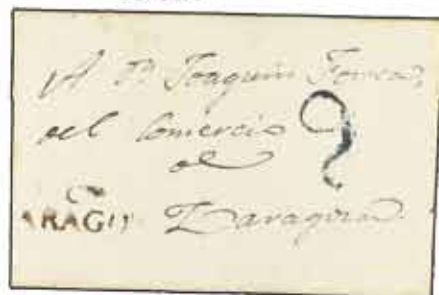 A Dn. Joaquin
del Comercio
de
ARAGON Zaragoza